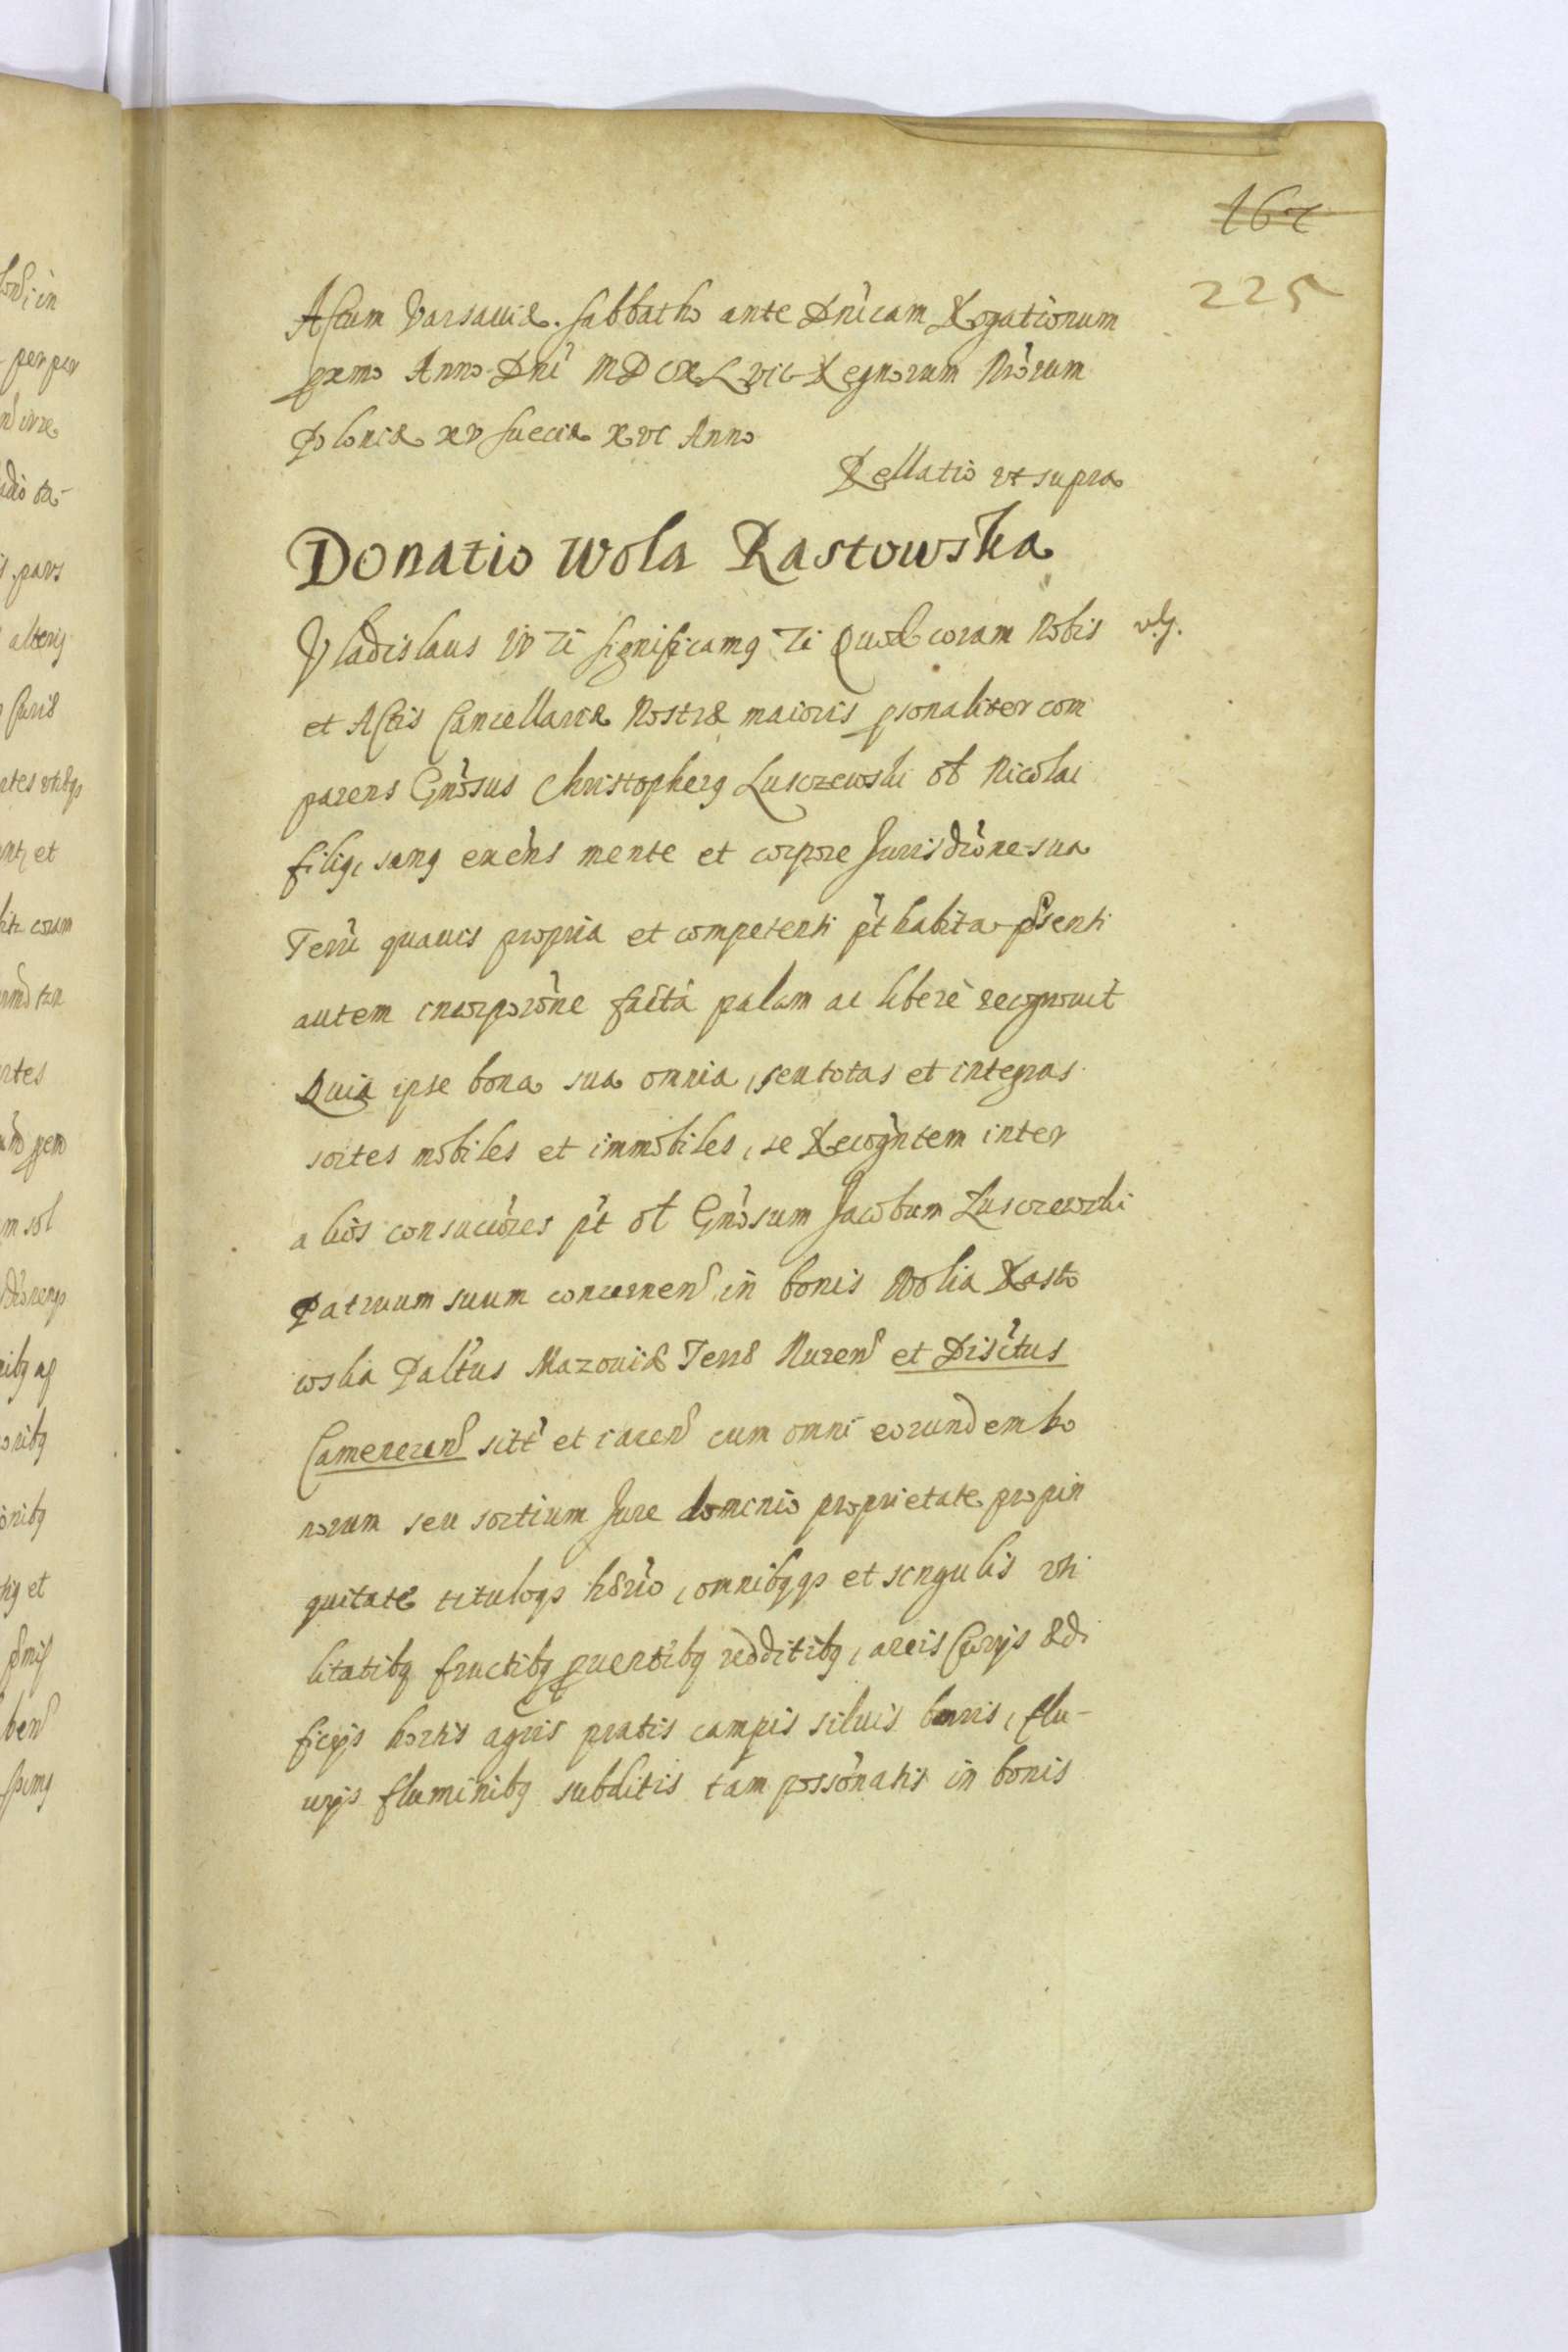 167
225
Actum Varsauiæ. Sabbatho ante Dnicam Rogationum
pxmo Anno Dni MDCXLVII Regnorum Nrorum
Poloniæ XV Sueciæ XVI Anno
Rellatio vt supra
Donatio Wola Rastowska
Vladislaus IV Ti Significamq Ti Quod coram Nobis
et Actis Cancellariæ Nostræ maioris psonaliter com
parens Gnosus Christopherq Lusczewski ol Nicolai
filiq, sanq exens mente et corpore Jurisdione sua
Terri quauis propria et competenti pt habita psenti
autem incorporone facta palam ac libere recognouit
Quia ipse bona sua omnia, seu totas et integras
sortes mobiles et immobiles, se Recogntem inter
alios consuciores pt ol Gnosum Jacobum Lusczewski
Patruum suum concernen in bonis Wolia Rasto
wska Paltus Mazouiæ Terræ Nuren et Drisctus
Cameneren sitt et iacen cum omni eorundem bo
norum seu sortium Jure dominio proprietate propin
quitate tituloqs hærio, omnibqqs et singulis vti
litatibq fructibq puentibq redditibq, areis Curijs ædi
ficijs hortis agris pratis campis siluis borris, flu-
uijs fluminibq subditis tam possonatis in bonis